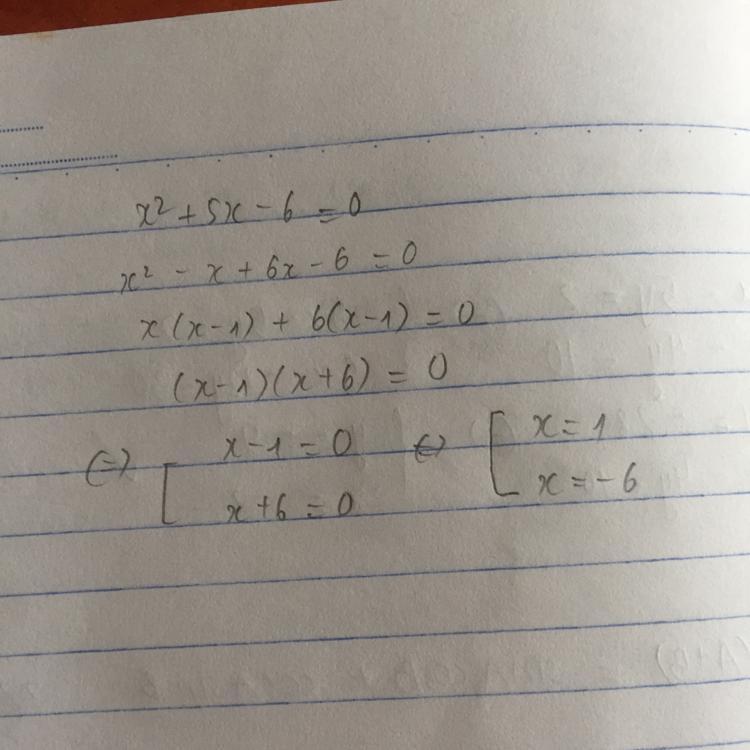 x² + 5x - 6 = 0
x² - x + 6x - 6 = 0
x(x-1) + 6(x-1) = 0
(x-1)(x+6) = 0
⇔ [ x-1 = 0 ⇔ [ x = 1
x+6 = 0 x = -6